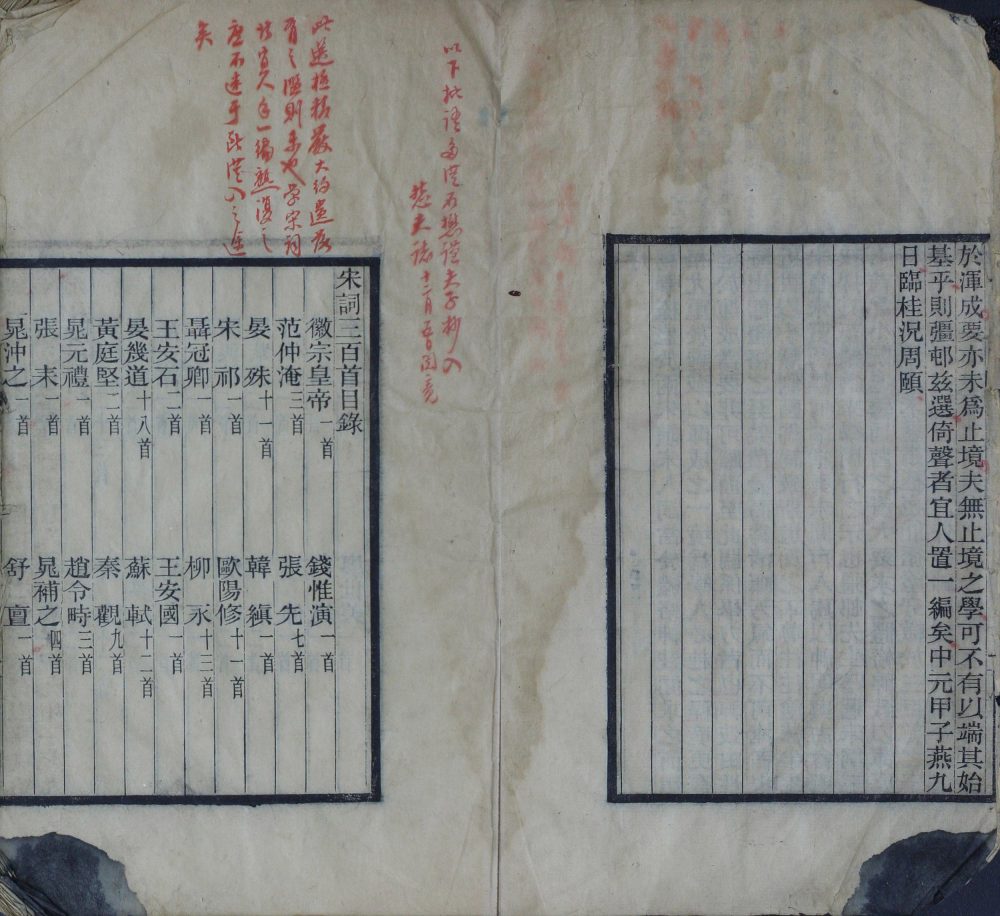 於渾成要亦未爲止境夫無止境之學可不有以端其始
基乎則彊邨兹選倚聲者宜人置一編矣中元甲子燕九
日臨桂況周頤
以下批語多從石懋謹夫子抄入
此選極精嚴大約遺落
有之濫則未也學宋詞
者人手一編熟復之
庶不迷于所從入之途
矣
宋詞三百首目錄
徽宗皇帝一首
錢惟演一首
范仲淹三首
張先七首
晏殊十一首
韓縝一首
宋祁一首
歐陽修十一首
聶冠卿一首
柳永十三首
王安石二首
王安國一首
晏幾道十八首
蘇軾十二首
黃庭堅二首
秦觀九首
晁元禮一首
趙令畤三首
張耒一首
晁補之四首
晁沖之一首
舒亶一首